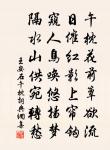 午枕花前簟欲流
日催紅影上帘鉤
窺人鳥喚悠揚夢
隔水山供宛轉愁
王安石午枕詩